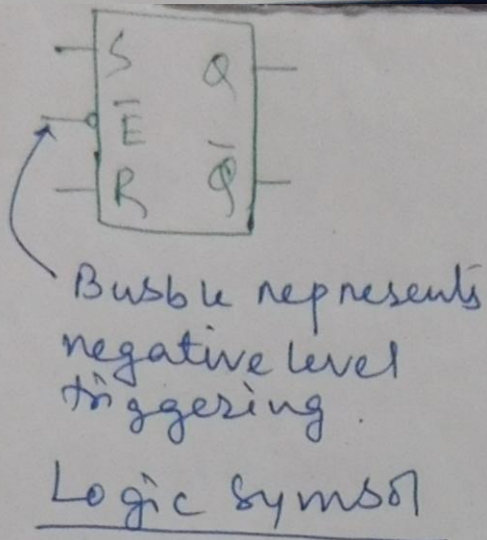 S Q
E̅
R Q̅
Bubble represents
negative level
triggering.
Logic Symbol